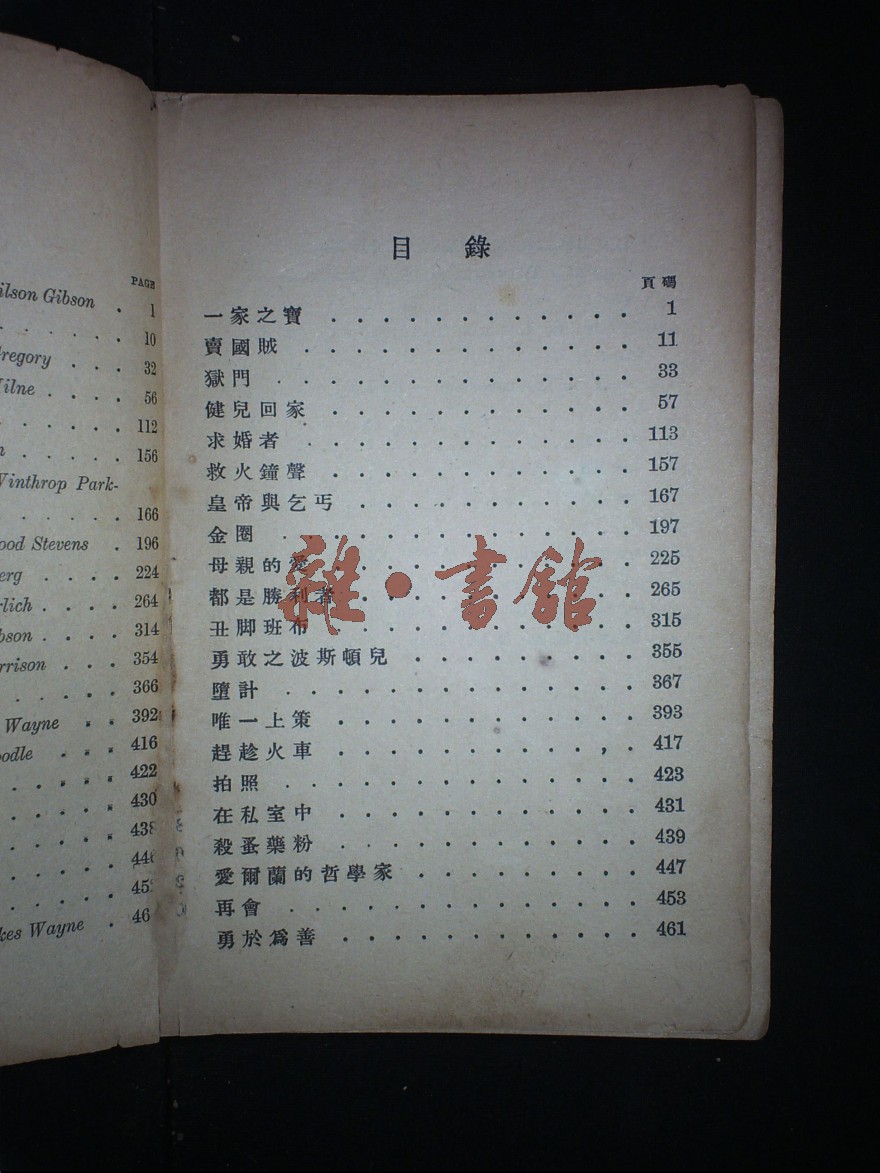 PAGE
ilson Gibson . 1
. . . . 10
regory . . . 32
Milne . . . . 56
. . . . . 112
n . . . . . 156
Winthrop Park-
. . . . . 166
ood Stevens . 196
erg . . . . 224
rlich . . . . 264
bson . . . . 314
rrison . . . 354
. . . . . 366
Wayne . . 392
oodle . . . 416
. . . . . 422
. . . . . 430
. . . . . 438
. . . . . 446
. . . . . 452
kes Wayne . 46
目錄
頁碼
一家之寶 . . . . . . . . . . . . 1
賣國賊 . . . . . . . . . . . . . 11
獄門 . . . . . . . . . . . . . . 33
健兒回家 . . . . . . . . . . . . 57
求婚者 . . . . . . . . . . . . . 113
救火鐘聲 . . . . . . . . . . . . 157
皇帝與乞丐 . . . . . . . . . . . 167
金圈 . . . . . . . . . . . . . . 197
母親的愛 . . . . . . . . . . . . 225
都是勝利者 . . . . . . . . . . . 265
丑脚班布 . . . . . . . . . . . . 315
勇敢之波斯頓兒 . . . . . . . . . 355
墮計 . . . . . . . . . . . . . . 367
唯一上策 . . . . . . . . . . . . 393
趕趁火車 . . . . . . . . . . . . 417
拍照 . . . . . . . . . . . . . . 423
在私室中 . . . . . . . . . . . . 431
殺蚤藥粉 . . . . . . . . . . . . 439
愛爾蘭的哲學家 . . . . . . . . . 447
再會 . . . . . . . . . . . . . . 453
勇於爲善 . . . . . . . . . . . . 461
雜·書館